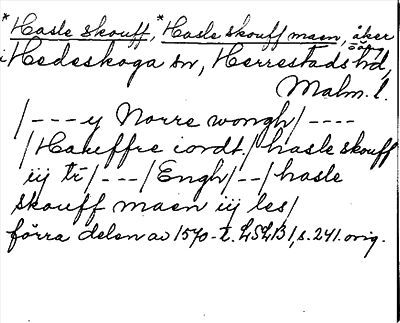 *Hasle skouff, *Hasle skouff maen, åker
i Hedeskoga sn, Herrestads hd,
Malm. l.
/---y Norre wongh/----
/Haueffre iordt/hasle skouff
iij tr/---/Engh/--/hasle
skouff maen iij les/
förra delen av 1570-t. LSLB 1, s. 241. orig.